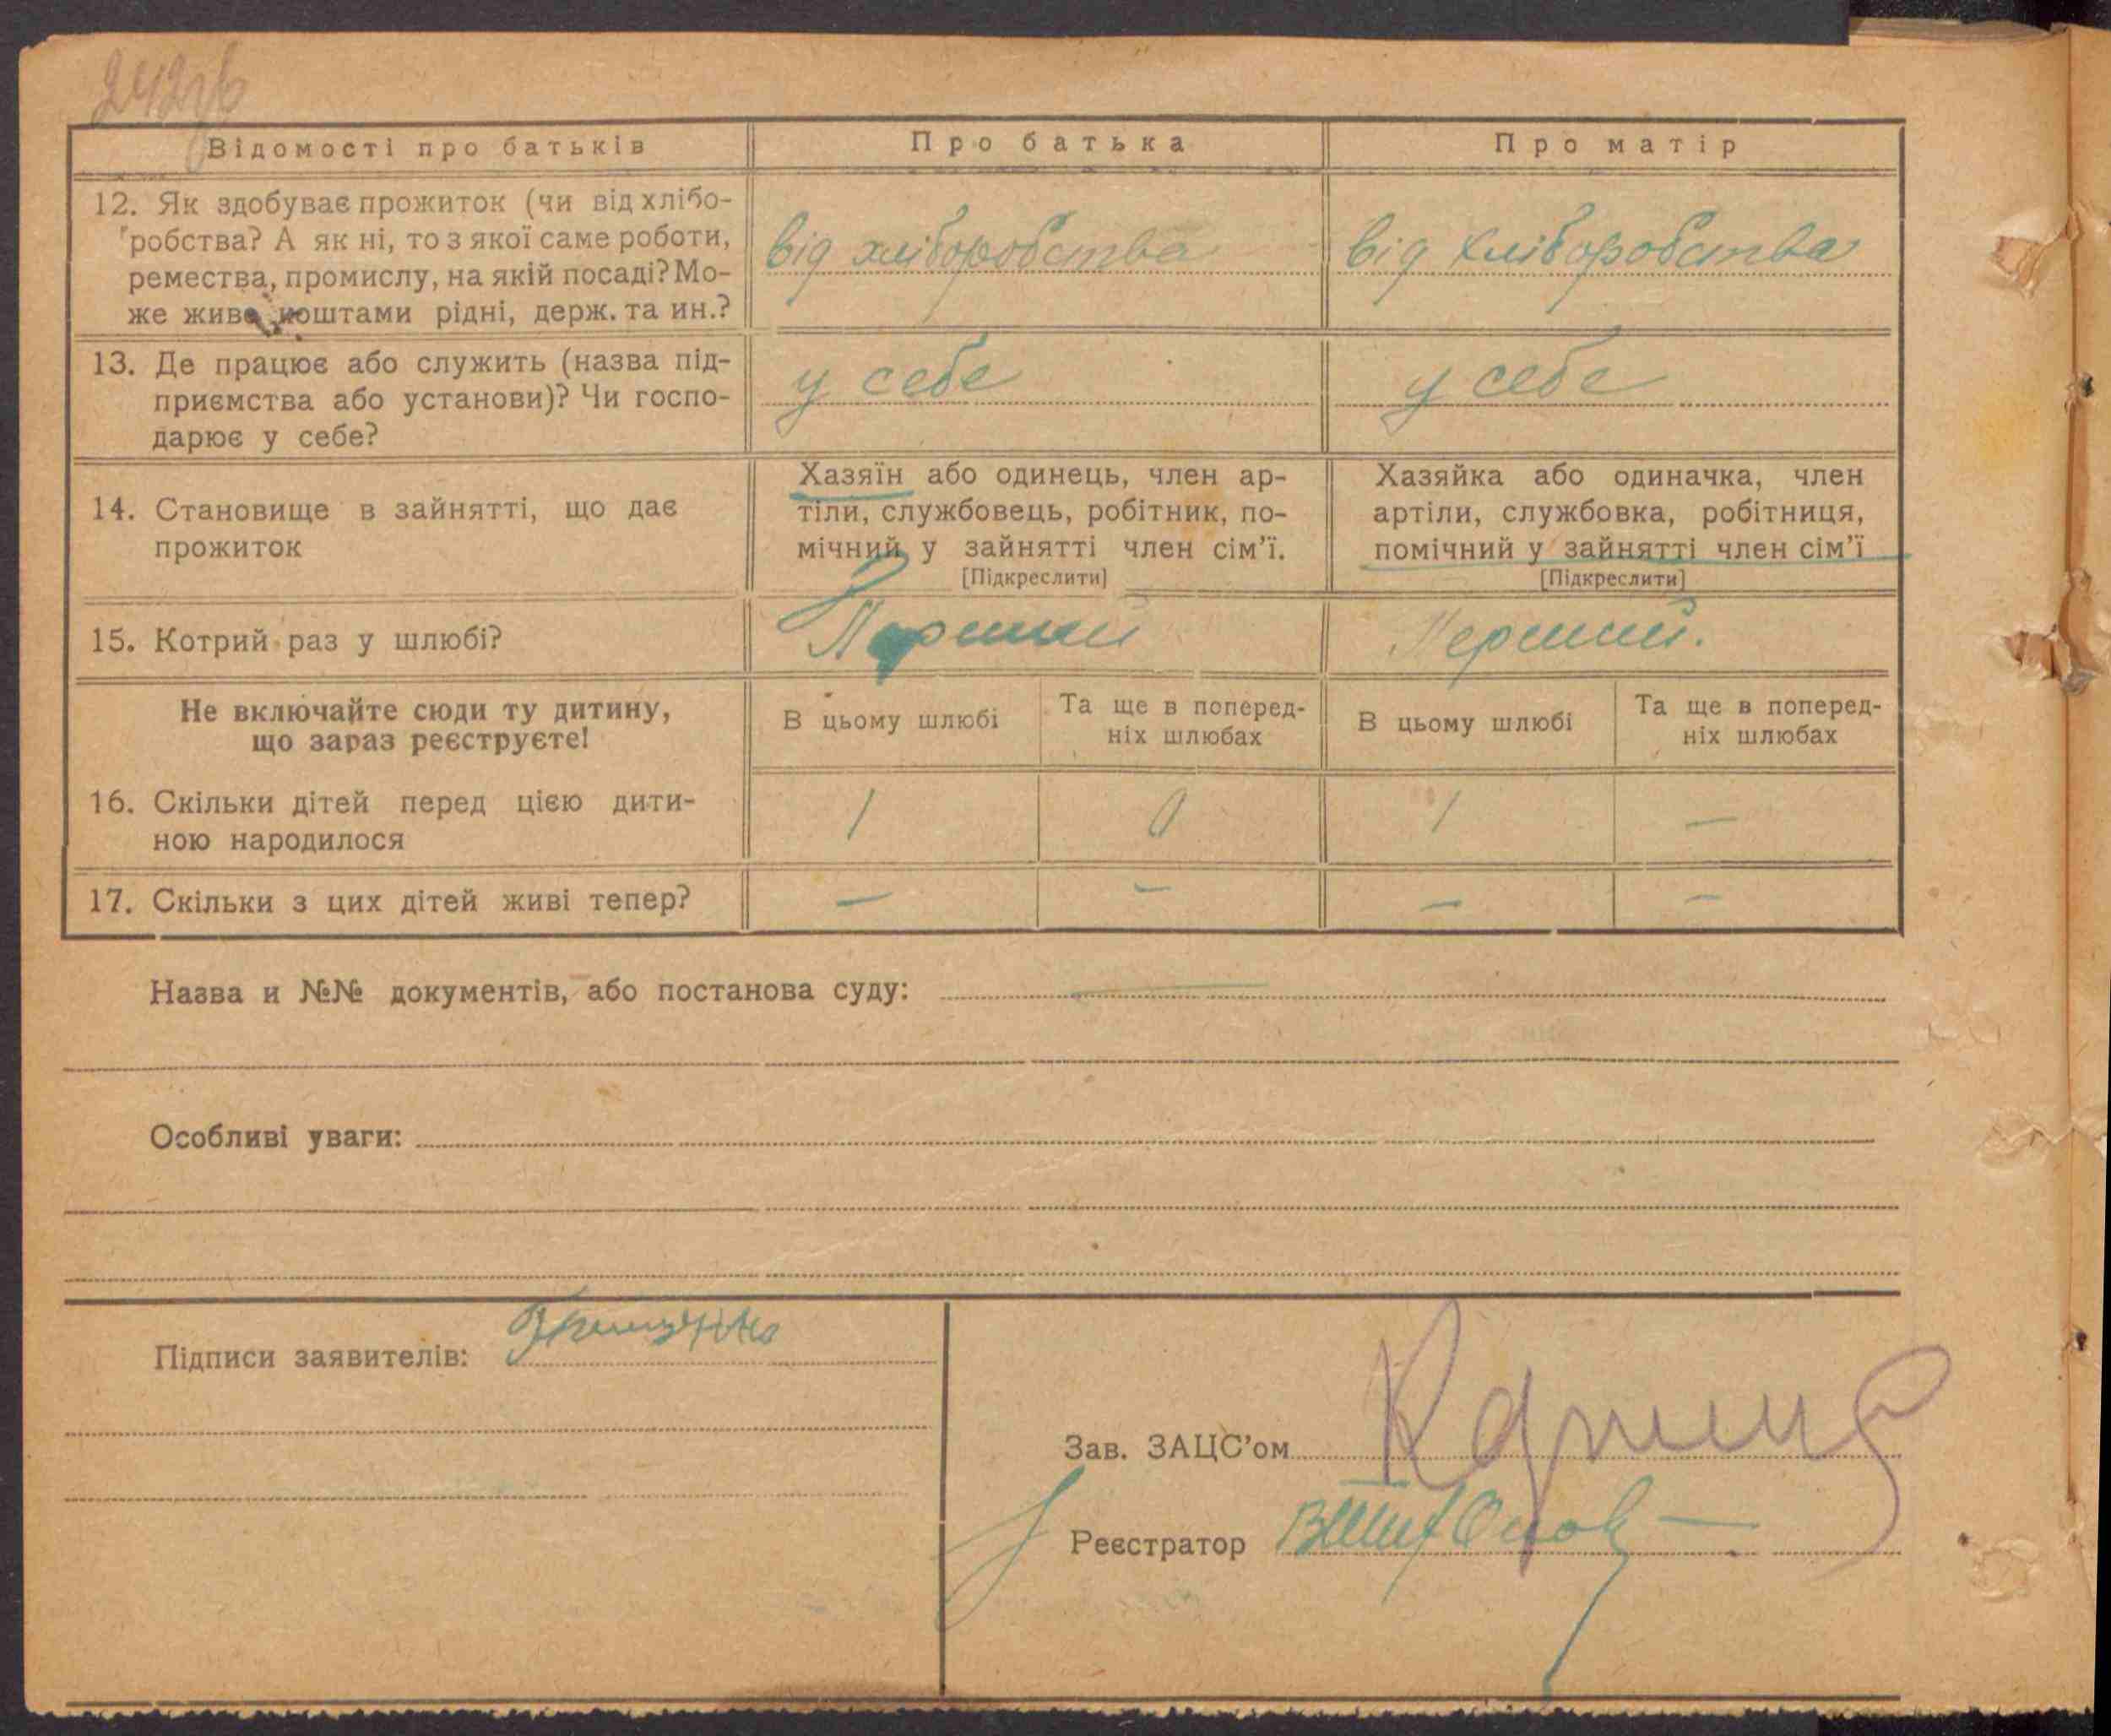 Відомості про батьків
Про батька
Про матір
12. Як здобуває прожиток (чи від хлібо-
робства? А як ні, то з якої саме роботи,
ремества, промислу, на якій посаді? Мо-
же живе коштами рідні, держ. та ин.?
від хліборобства
від хліборобства
13. Де працює або служить (назва під-
приємства або установи)? Чи госпо-
дарює у себе?
у себе
у себе
14. Становище в зайнятті, що дає
прожиток
Хазяїн або одинець, член ар-
тіли, службовець, робітник, по-
мічний у зайнятті член сім’ї.
[Підкреслити]
Хазяйка або одиначка, член
артіли, службовка, робітниця,
помічний у зайнятті член сім’ї
[Підкреслити]
15. Котрий раз у шлюбі?
Перший
Перший.
Не включайте сюди ту дитину,
що зараз реєструєте!
В цьому шлюбі
Та ще в поперед-
ніх шлюбах
В цьому шлюбі
Та ще в поперед-
ніх шлюбах
16. Скільки дітей перед цією дити-
ною народилося
1
0
1
—
17. Скільки з цих дітей живі тепер?
—
—
—
—
Назва и №№ документів, або постанова суду:
Особливі уваги:
Підписи заявителів:
Зав. ЗАЦС’ом
Реєстратор